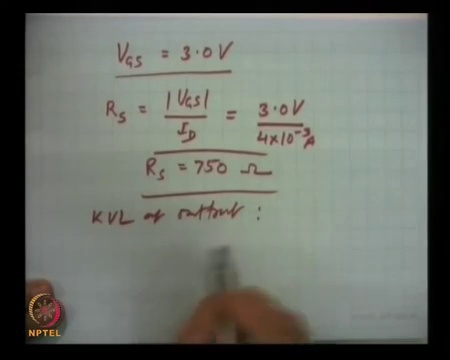 V_GS = 3.0 V
R_S = |V_GS| / I_D = 3.0 V / 4×10⁻³ A
R_S = 750 Ω
KVL at output :
NPTEL